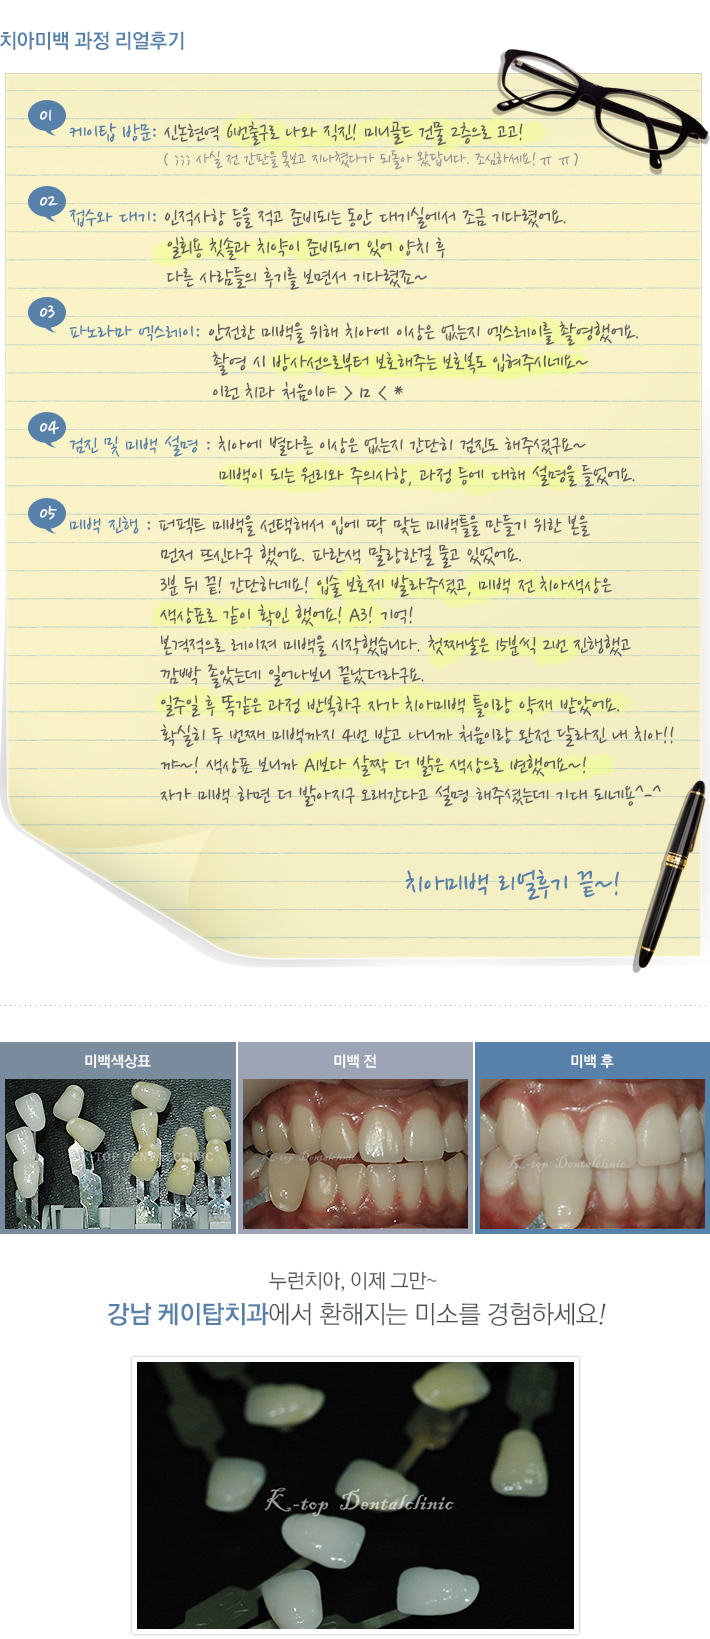 치아미백 과정 리얼후기
01
케이탑 방문: 신논현역 6번출구로 나와 직진! 미니골드 건물 2층으로 고고!
( ;;; 사실 전 간판을 못보고 지나쳤다가 되돌아 왔답니다. 조심하세요! ㅠ ㅠ )
02
접수와 대기: 인적사항 등을 적고 준비되는 동안 대기실에서 조금 기다렸어요.
일회용 칫솔과 치약이 준비되어 있어 양치 후
다른 사람들의 후기를 보면서 기다렸죠~
03
파노라마 엑스레이: 안전한 미백을 위해 치아에 이상은 없는지 엑스레이를 촬영했어요.
촬영 시 방사선으로부터 보호해주는 보호복도 입혀주시네요~
이런 치과 처음이야 > ㅁ < *
04
검진 및 미백 설명 : 치아에 별다른 이상은 없는지 간단히 검진도 해주셨구요~
미백이 되는 원리와 주의사항, 과정 등에 대해 설명을 들었어요.
05
미백 진행 : 퍼펙트 미백을 선택해서 입에 딱 맞는 미백틀을 만들기 위한 본을
먼저 뜨신다구 했어요. 파란색 말랑한걸 물고 있었어요.
3분 뒤 끝! 간단하네요! 입술 보호제 발라주셨고, 미백 전 치아색상은
색상표로 같이 확인 했어요! A3! 기억!
본격적으로 레이져 미백을 시작했습니다. 첫째날은 15분씩 2번 진행했고
깜빡 졸았는데 일어나보니 끝났더라구요.
일주일 후 똑같은 과정 반복하구 자가 치아미백 틀이랑 약재 받았어요.
확실히 두 번째 미백까지 4번 받고 나니까 처음이랑 완전 달라진 내 치아!!
꺄~! 색상표 보니까 A1보다 살짝 더 밝은 색상으로 변했어요~!
자가 미백 하면 더 밝아지구 오래간다고 설명 해주셨는데 기대 되네용^-^
치아미백 리얼후기 끝~!
미백색상표
미백 전
미백 후
K-TOP DENTALCLINIC
K-top Dentalclinic
K-top Dentalclinic
누런치아, 이제 그만~
강남 케이탑치과에서 환해지는 미소를 경험하세요!
K-top Dentalclinic